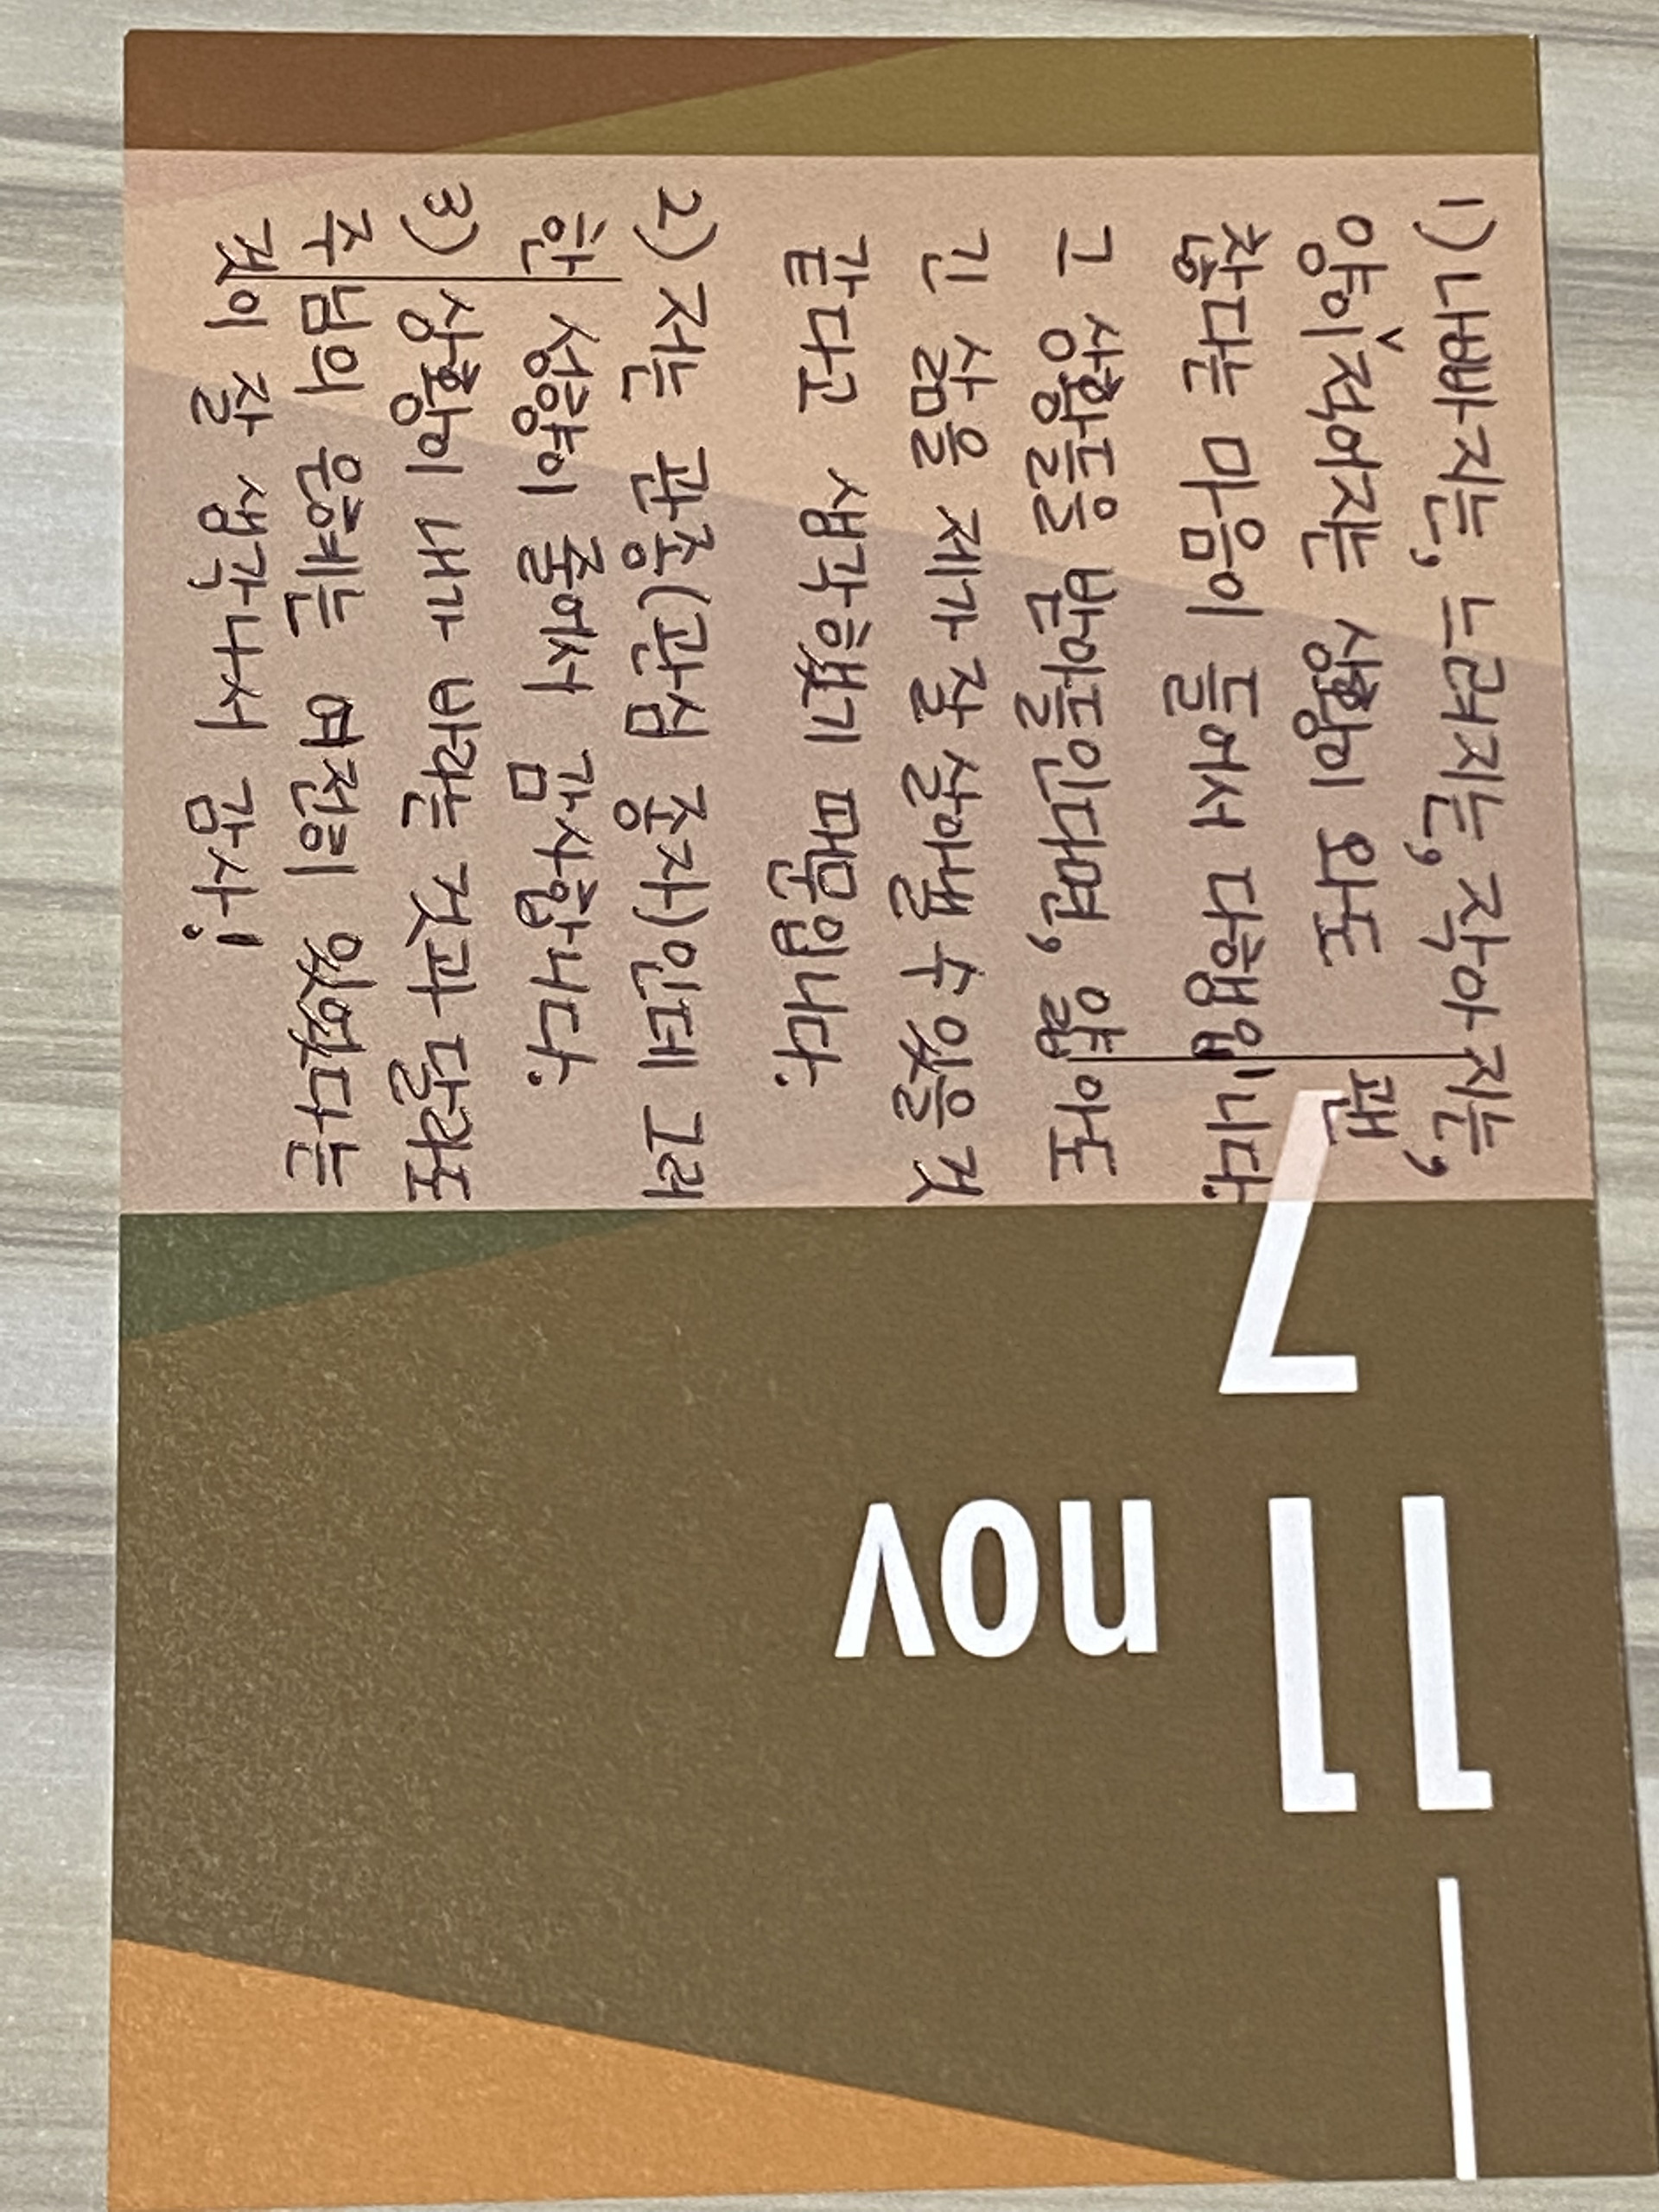 1) 나빠지는, 느려지는, 작아지는,
양이 적어지는 상황이 와도 괜
찮다는 마음이 들어서 다행입니다.
그 상황들을 받아들인다면, 얇아도
긴 삶을 제가 잘 살아낼 수 있을 것
같다고 생각했기 때문입니다.
2) 저는 관종(관심 종자)인데 그러
한 성향이 줄어서 감사합니다.
3) 상황이 내가 바라는 것과 달라도
주님의 은혜는 여전히 있었다는
것이 잘 생각나서 감사!
7
11
nov